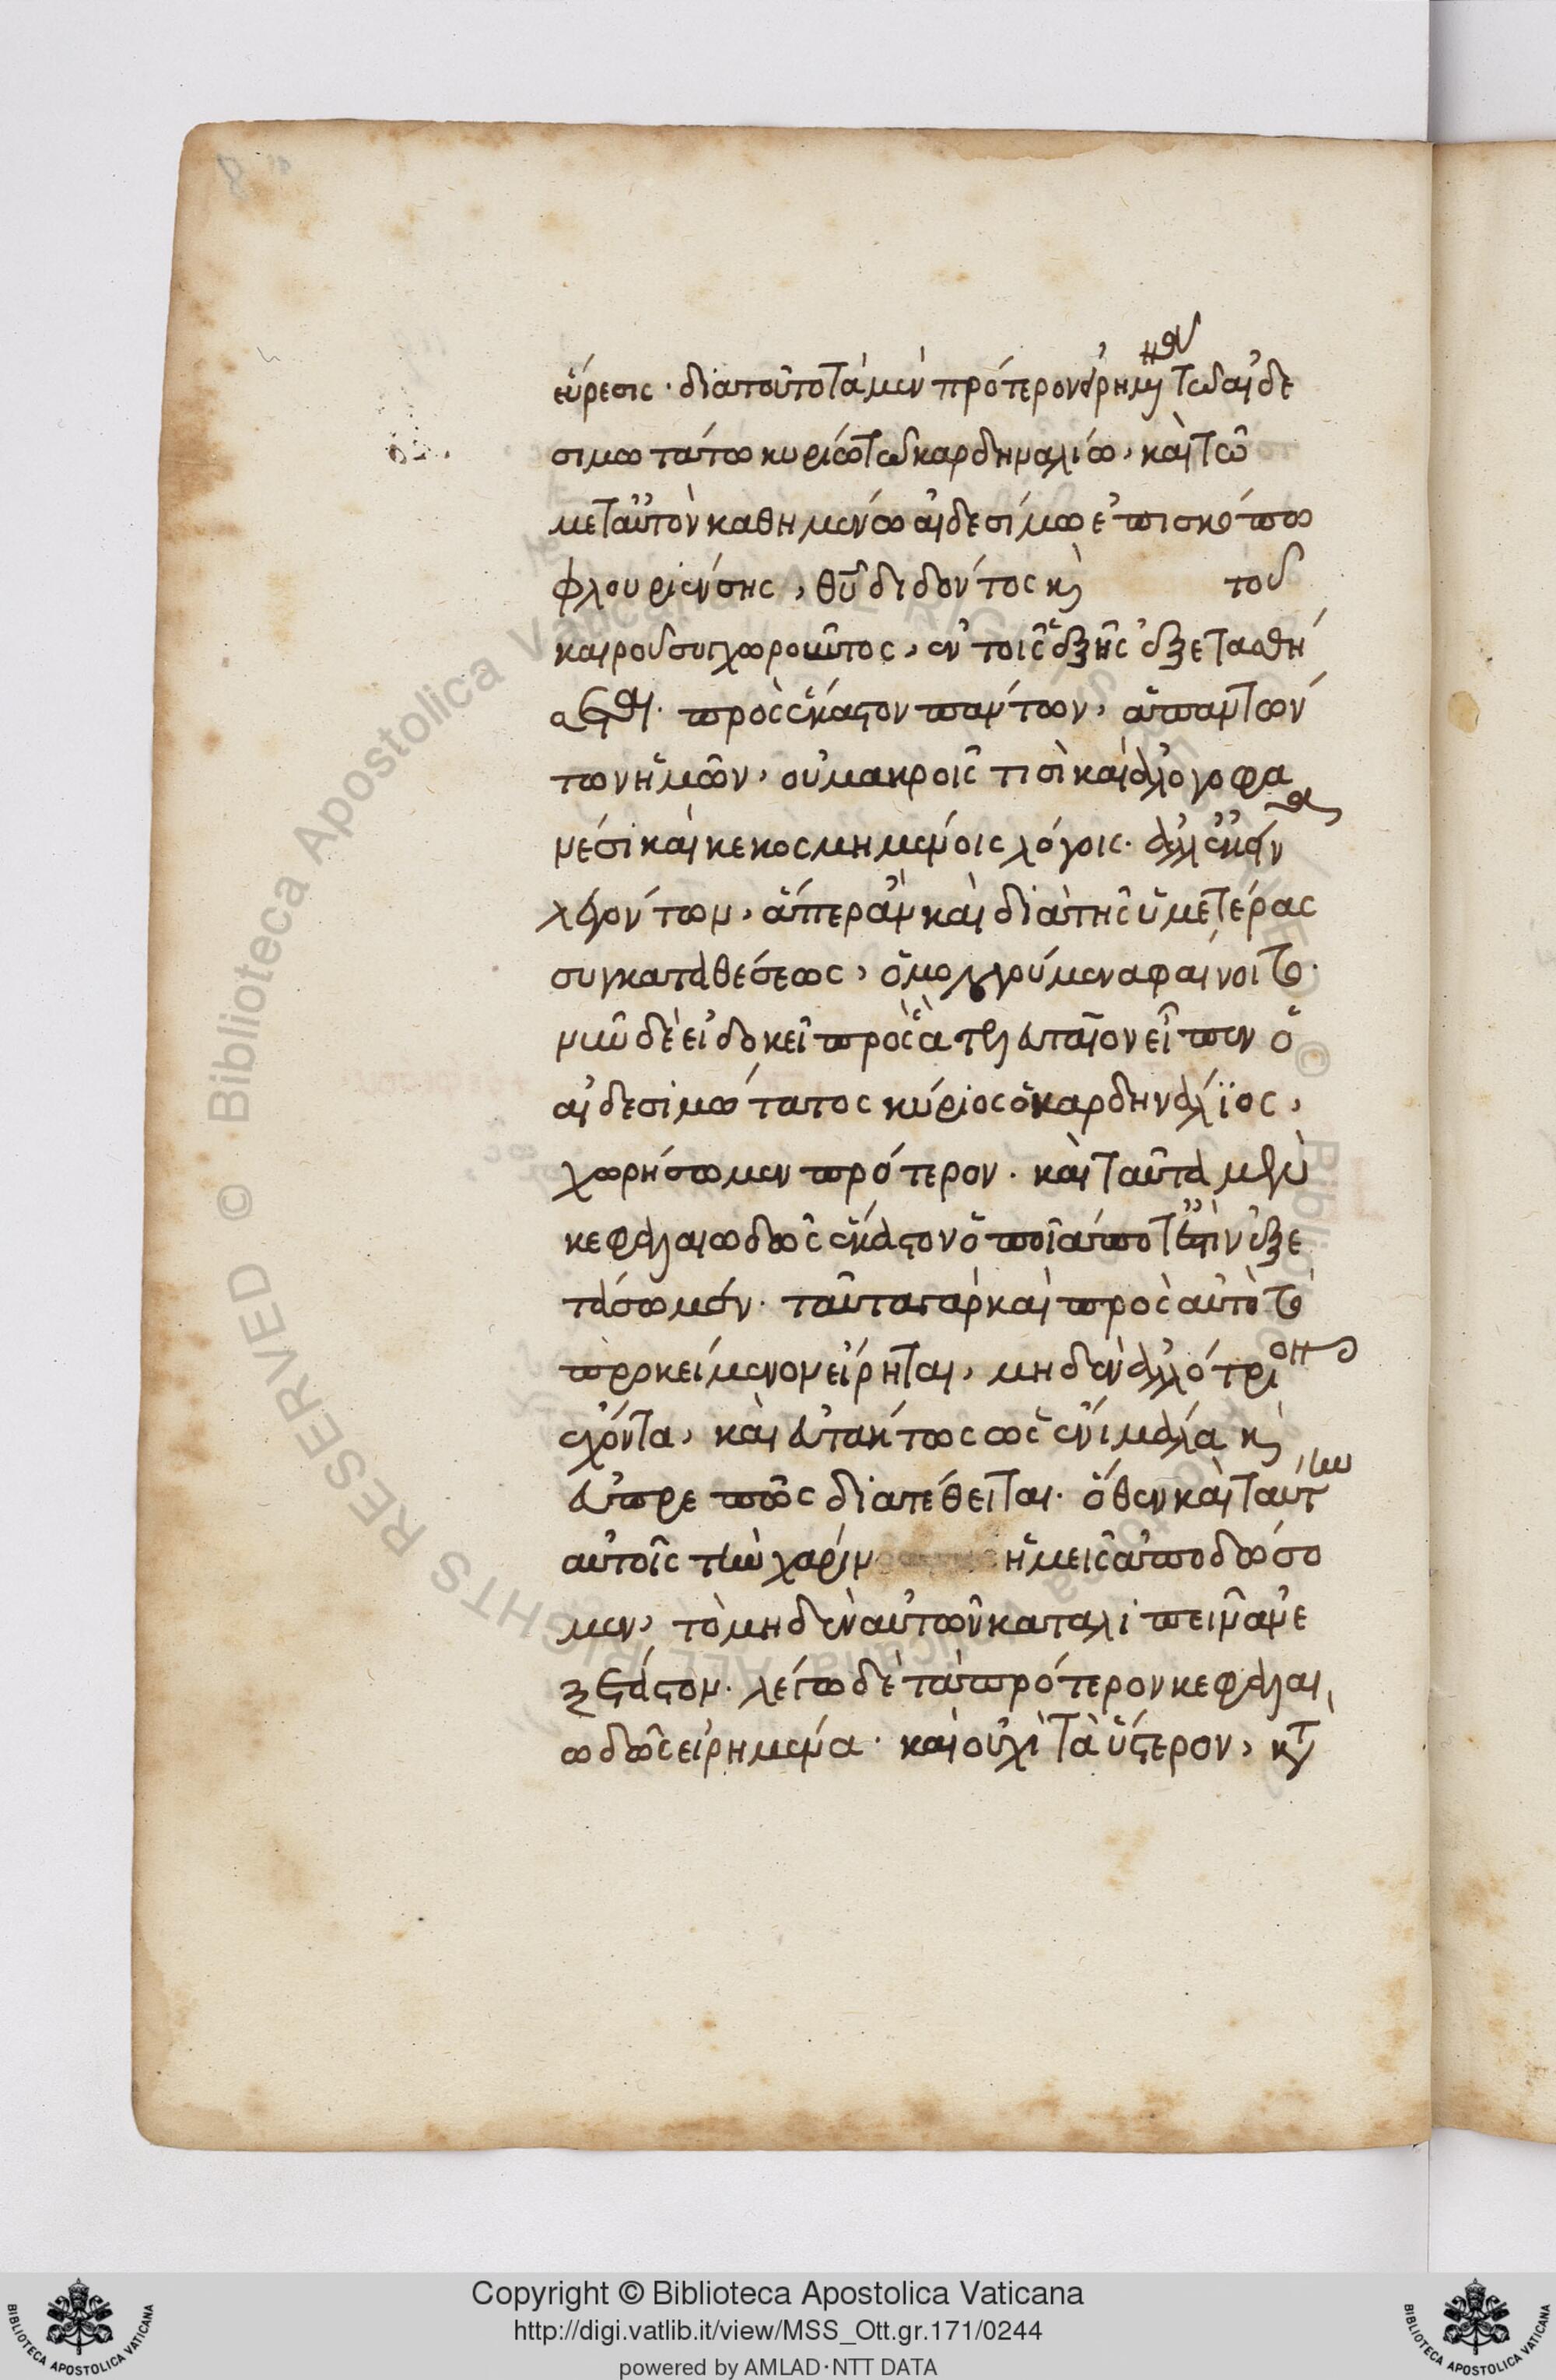 εὕρεσις· διατοῦτο τὰ μὲν πρότερον εἰρημένα τῶ αἰδε
σιμωτάτω κυρίω τῶ καρδηναλίω, καὶ τῶ
μετ αὐτὸν καθημένω αἰδεσίμω ἐπισκόπω
φλουριένσης, θῦ διδόντος κὶ τοῦ
καιροῦ συγχωροῦντος, ἐν τοῖς ἑξῆς ἐξετασθή
πρὸς ἕκαστον πάντων, ἁπάντων
των ἡμῶν, οὐ μακροῖς τισὶ καὶ λογογρα
μέσι καὶ κεκοσμημένοις λόγοις· ἀλλ
λεγόντων, ἅπερ ἂν καὶ διὰ τῆς ὑμετέρας
συγκαταθέσεως, ὁμολογούμενα φαίνοιτο·
νῦν δὲ εἰ δοκεῖ πρὸς ἃ εἶπεν ὁ
αἰδεσιμώτατος κύριος ὁ καρδηνάλϊος,
χωρήσωμεν πρότερον· καὶ ταῦτα μὲν
κεφαλαιωδῶς ἕκαστον ὁποῖάποτ ἐστὶν ἐξε
τάσωμεν· ταῦτα γὰρ καὶ πρὸς αὐτὸ τὸ
προκείμενον εἴρηται, μηδὲν ἀλλότριον
ἔχοντα, καὶ εὐτάκτως ὡς ἔνι μάλα κὶ
εὐπρεπῶς διατέθειται· ὅθεν καὶ ταύτην
αὐτοῖς τὴν χάριν ἡμεῖς ἀποδώσο
μεν, τὸ μηδὲν αὐτῶν καταλιπεῖν ἀνε
ξέταστον· λέγω δὲ τὰ πρότερον κεφαλαι
ωδῶς εἰρημένα· καὶ οὐχὶ τὰ ὕστερον, κτ
Copyright © Biblioteca Apostolica Vaticana
http://digi.vatlib.it/view/MSS_Ott.gr.171/0244
powered by AMLAD·NTT DATA